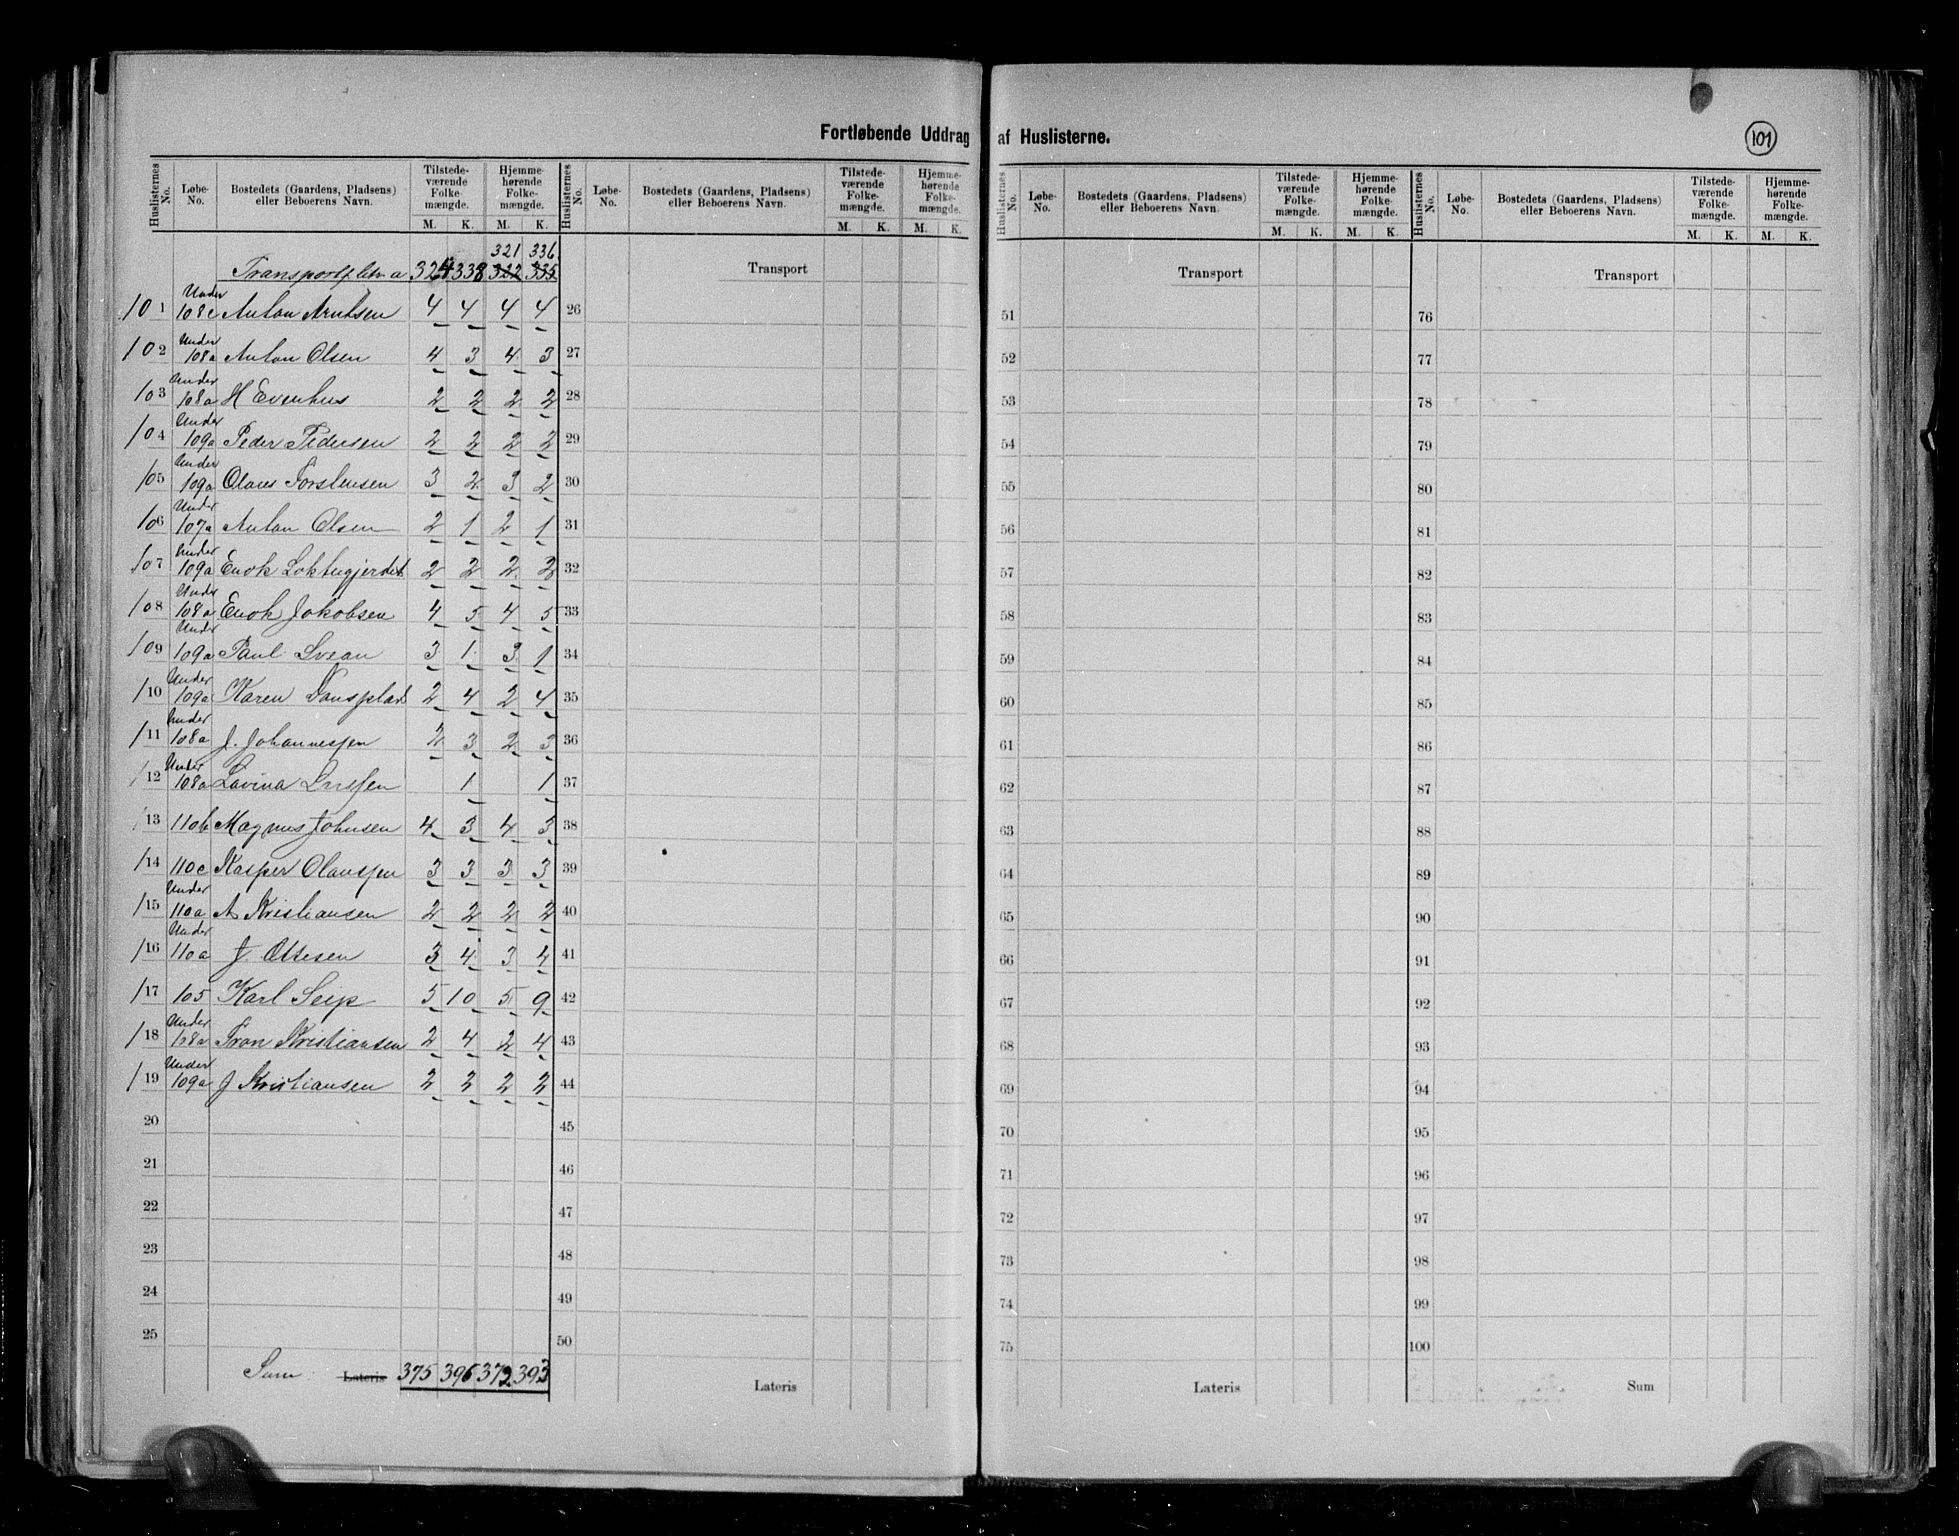 Fortløbende Uddrag af Huslisterne.
101
Huslisternes No. Løbe-No. Bostedets (Gaardens, Pladsens) eller Beboerens Navn. Tilstedeværende Folkemængde. M. K. Hjemmehørende Folkemængde. M. K.
321 336
324 338 322 335
101 Under 108c Anton Arntsen 4 4 4 4
102 Under 108a Anton Olsen 4 3 4 3
103 Under 108a H Evenhus 2 2 2 2
104 Under 109a Peder Pedersen 2 2 2 2
105 Under 109a Olaus Torstensen 3 2 3 2
106 Under 107a Anton Olsen 2 1 2 1
107 Under 109a Enok Loktugjerdet 2 2 2 2
108 Under 108a Enok Jakobsen 4 5 4 5
109 Under 109a Paul Svean 3 1 3 1
110 Under 109a Karen 2 4 2 4
111 Under 108a J. Johannessen 2 3 2 3
112 Under 108a Lavina 1 1
113 110b Magnus Johnsen 4 3 4 3
114 110c Kasper Olaussen 3 3 3 3
115 Under 110a A Kristiansen 2 2 2 2
116 Under 110a J. Ottesen 3 4 3 4
117 105 Karl Seip 5 10 5 9
118 Under 108a Tron Kristiansen 2 4 2 4
119 Under 109a J Kristiansen 2 2 2 2
20
21
22
23
24
25
Sum: Lateris 375 396 372 393
Huslisternes No. Løbe-No. Bostedets (Gaardens, Pladsens) eller Beboerens Navn. Tilstedeværende Folkemængde. M. K. Hjemmehørende Folkemængde. M. K.
Transport
26
27
28
29
30
31
32
33
34
35
36
37
38
39
40
41
42
43
44
45
46
47
48
49
50
Lateris
Huslisternes No. Løbe-No. Bostedets (Gaardens, Pladsens) eller Beboerens Navn. Tilstedeværende Folkemængde. M. K. Hjemmehørende Folkemængde. M. K.
Transport
51
52
53
54
55
56
57
58
59
60
61
62
63
64
65
66
67
68
69
70
71
72
73
74
75
Lateris
Huslisternes No. Løbe-No. Bostedets (Gaardens, Pladsens) eller Beboerens Navn. Tilstedeværende Folkemængde. M. K. Hjemmehørende Folkemængde. M. K.
Transport
76
77
78
79
80
81
82
83
84
85
86
87
88
89
90
91
92
93
94
95
96
97
98
99
100
Sum